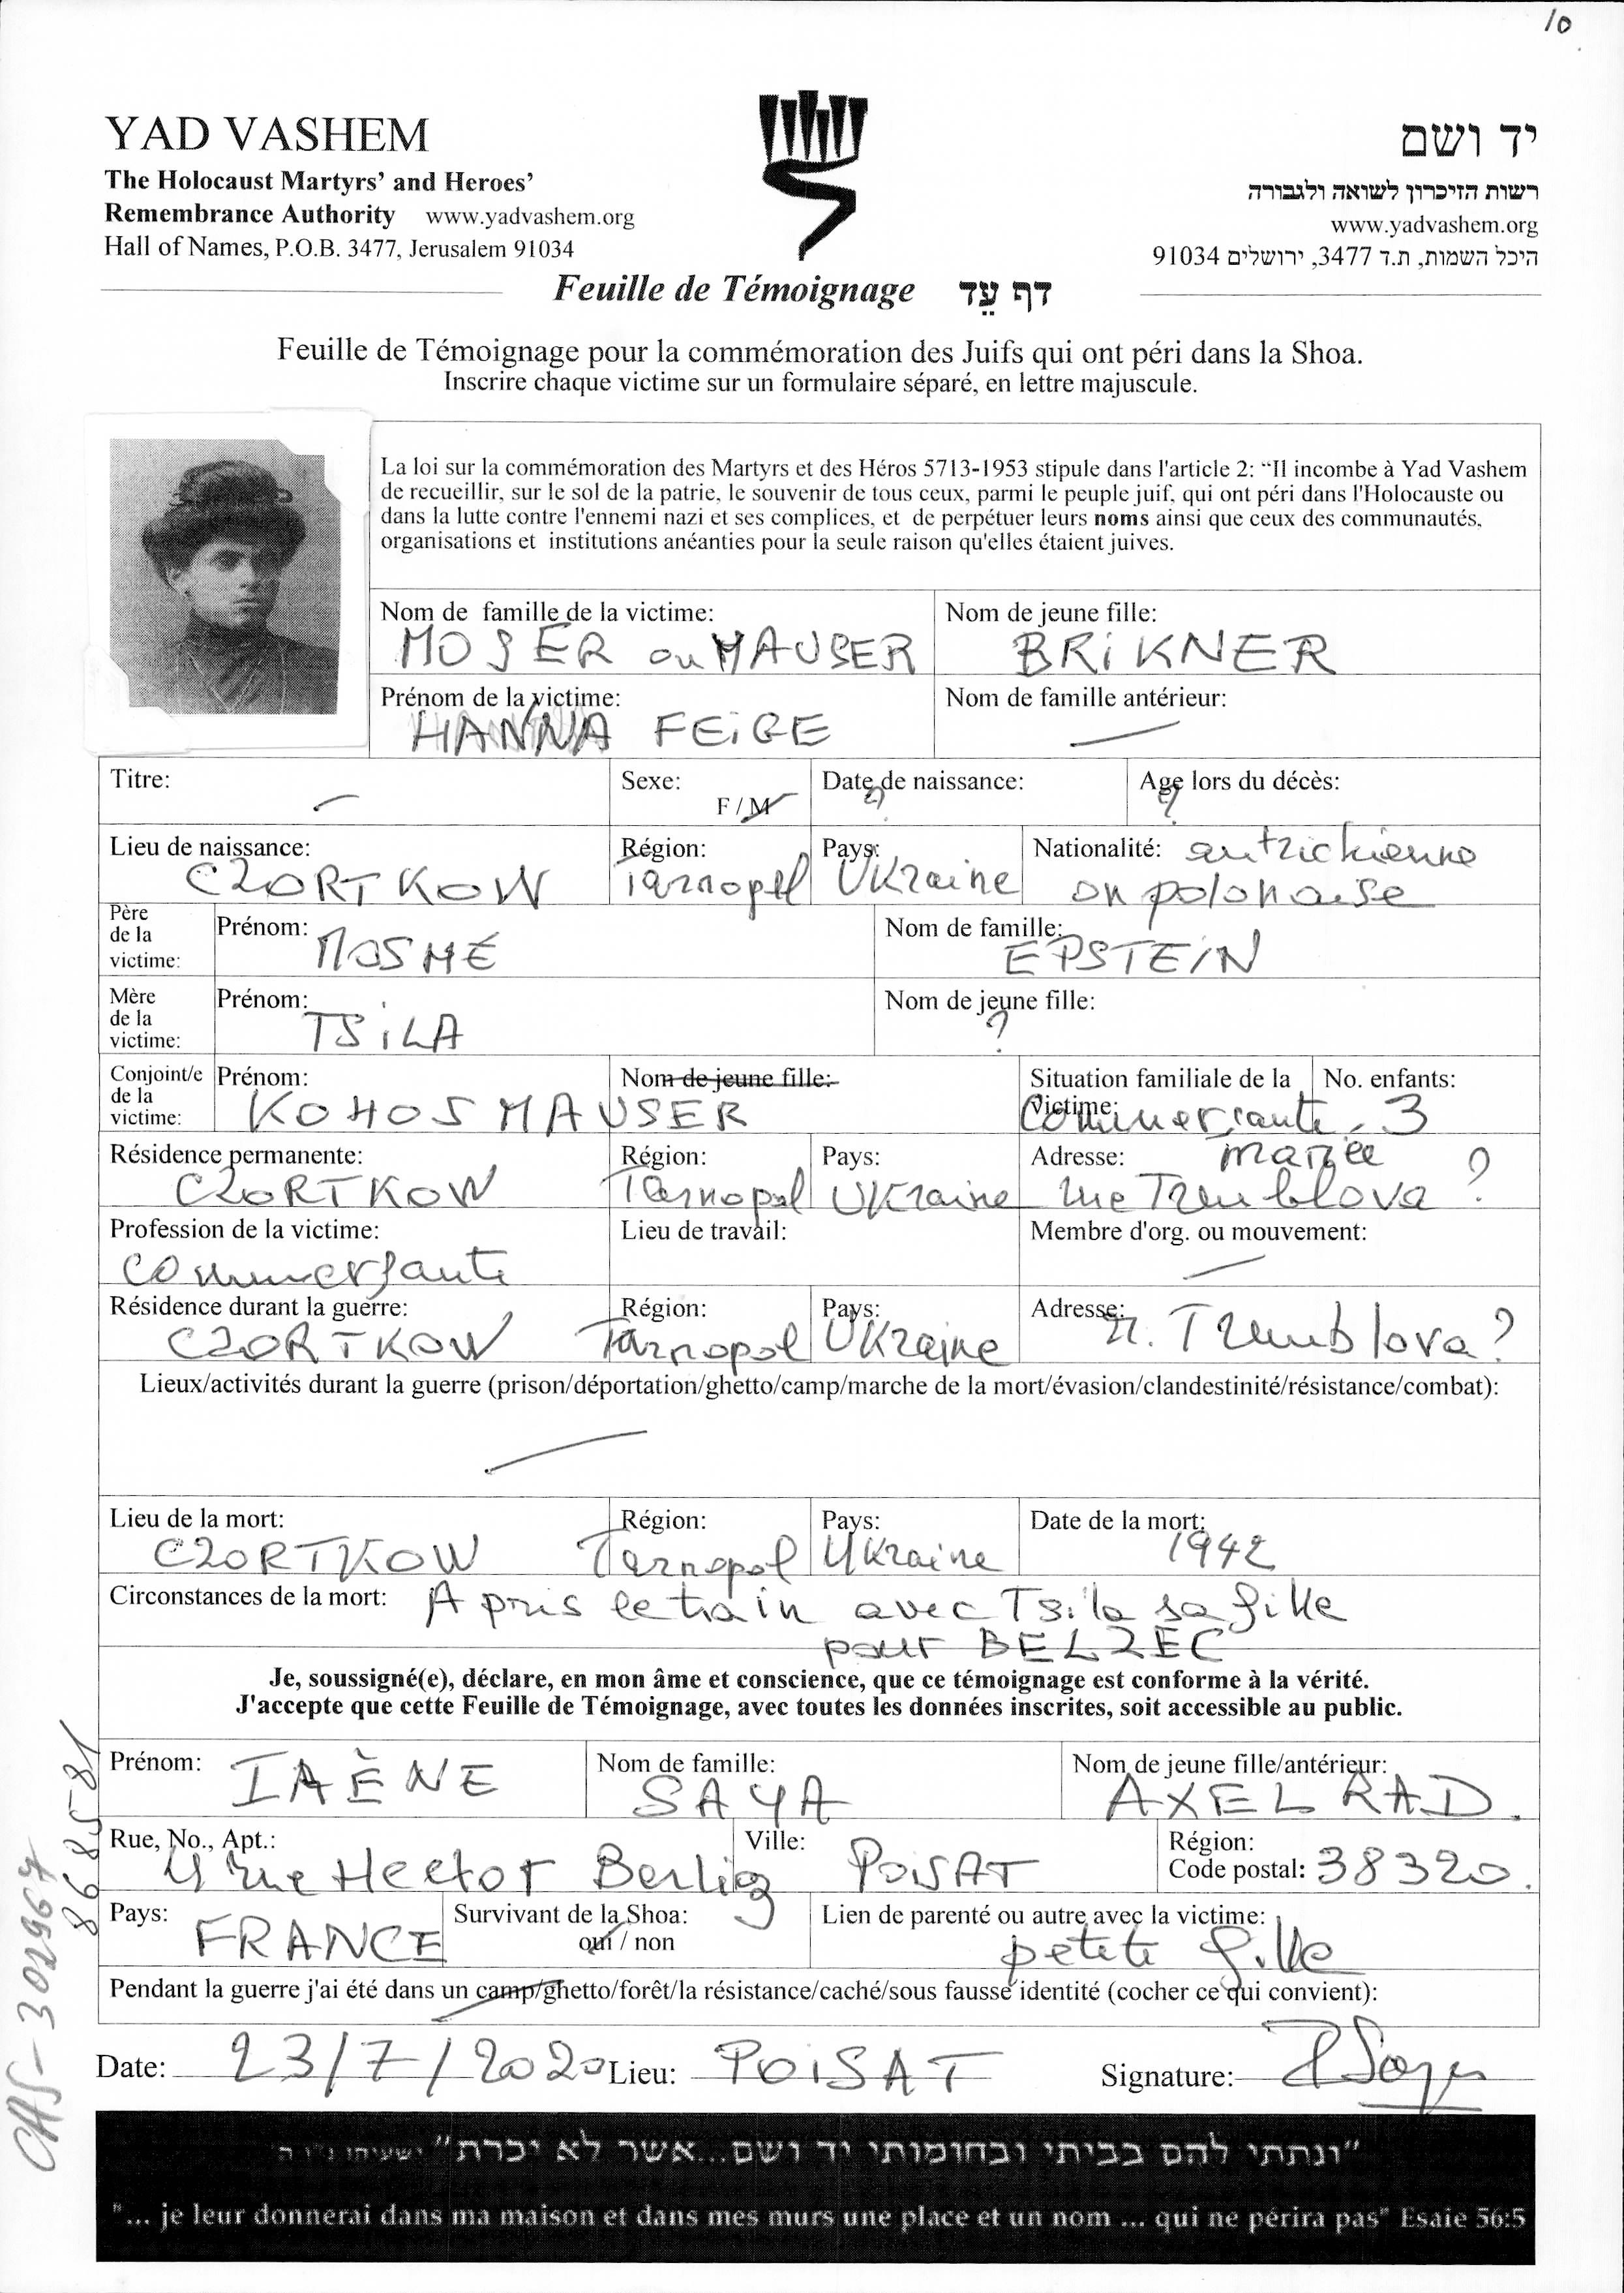 10
YAD VASHEM
The Holocaust Martyrs' and Heroes'
Remembrance Authority www.yadvashem.org
Hall of Names, P.O.B. 3477, Jerusalem 91034
יד ושם
רשות הזיכרון לשואה ולגבורה
www.yadvashem.org
היכל השמות, ת.ד 3477, ירושלים 91034
Feuille de Témoignage דף עֵד
Feuille de Témoignage pour la commémoration des Juifs qui ont péri dans la Shoa.
Inscrire chaque victime sur un formulaire séparé, en lettre majuscule.
La loi sur la commémoration des Martyrs et des Héros 5713-1953 stipule dans l'article 2: “Il incombe à Yad Vashem
de recueillir, sur le sol de la patrie, le souvenir de tous ceux, parmi le peuple juif, qui ont péri dans l'Holocauste ou
dans la lutte contre l'ennemi nazi et ses complices, et de perpétuer leurs noms ainsi que ceux des communautés,
organisations et institutions anéanties pour la seule raison qu'elles étaient juives.
Nom de famille de la victime: Nom de jeune fille:
MOSER ou MAUSER BRIKNER
Prénom de la victime: Nom de famille antérieur:
HANNA FEIGE —
Titre: — Sexe: F / M Date de naissance: ? Age lors du décès: ?
Lieu de naissance: Région: Pays: Nationalité: autrichienne
CZORTKOW Tarnopol Ukraine ou polonaise
Père de la victime: Prénom: MOSHÉ Nom de famille: EPSTEIN
Mère de la victime: Prénom: TSILA Nom de jeune fille: ?
Conjoint/e de la victime: Prénom: Nom de jeune fille: Situation familiale de la victime: No. enfants:
KOHOS MAUSER Commerçante, 3
mariée
Résidence permanente: Région: Pays: Adresse:
CZORTKOW Tarnopol Ukraine rue Tremblova ?
Profession de la victime: Lieu de travail: Membre d'org. ou mouvement:
commerçante —
Résidence durant la guerre: Région: Pays: Adresse:
CZORTKOW Tarnopol Ukraine r. Tremblova ?
Lieux/activités durant la guerre (prison/déportation/ghetto/camp/marche de la mort/évasion/clandestinité/résistance/combat):
—
Lieu de la mort: Région: Pays: Date de la mort:
CZORTKOW Tarnopol Ukraine 1942
Circonstances de la mort: A pris le train avec Tsila sa fille
pour BELZEC
Je, soussigné(e), déclare, en mon âme et conscience, que ce témoignage est conforme à la vérité.
J'accepte que cette Feuille de Témoignage, avec toutes les données inscrites, soit accessible au public.
Prénom: Nom de famille: Nom de jeune fille/antérieur:
SAYA AXELRAD.
Rue, No., Apt.: Ville: Région:
rue Hector Berlioz POISAT Code postal: 38320.
Pays: FRANCE Survivant de la Shoa: oui / non Lien de parenté ou autre avec la victime:
petite fille
Pendant la guerre j'ai été dans un camp/ghetto/forêt/la résistance/caché/sous fausse identité (cocher ce qui convient):
Date: 23/7/2020 Lieu: POISAT Signature:
CAS-302967
868581
"ונתתי להם בביתי ובחומותי יד ושם...אשר לא יכרת" ישעיהו נ"ו ה'
"... je leur donnerai dans ma maison et dans mes murs une place et un nom ... qui ne périra pas" Esaie 56:5